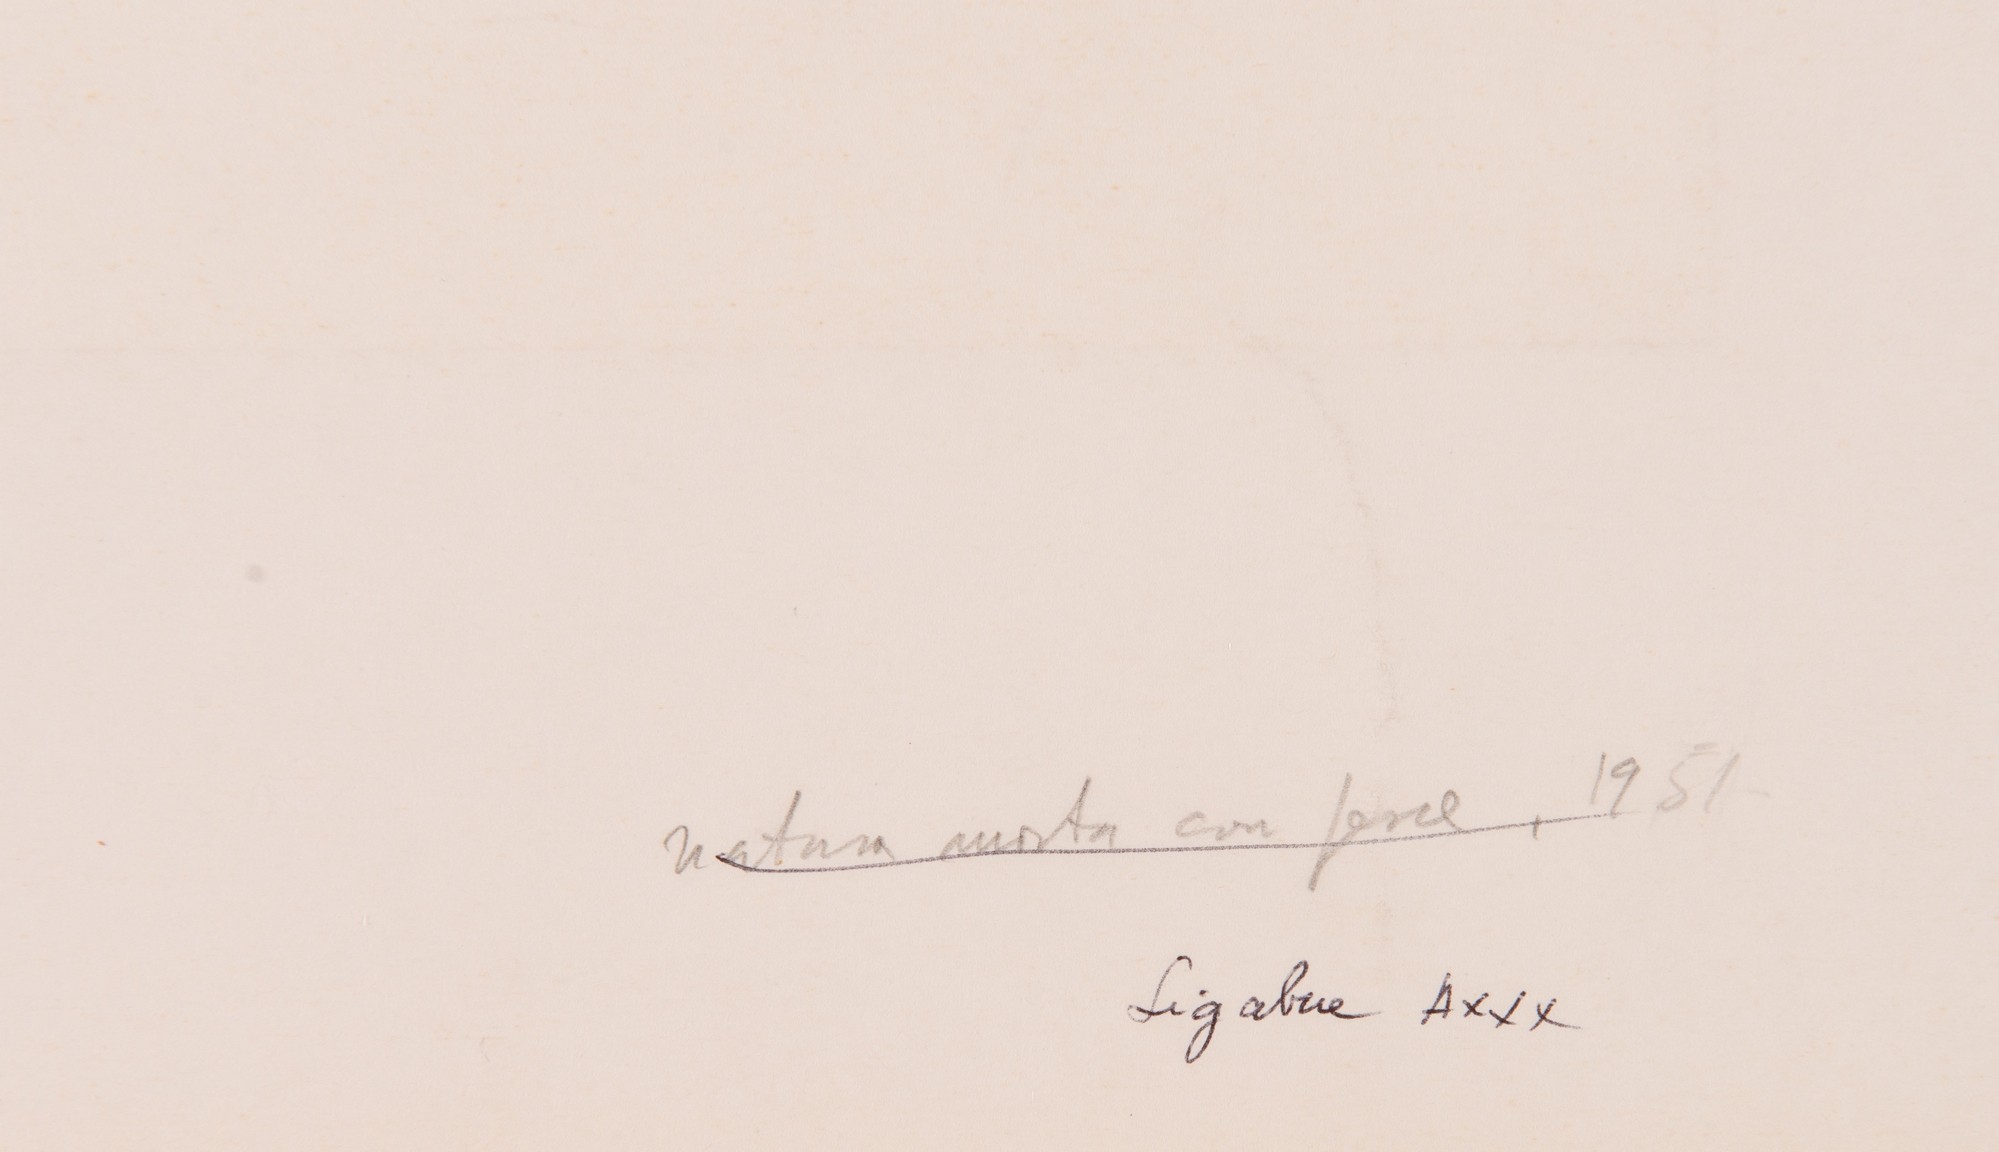 natura morta con pesce, 1951-
Ligabue Axxx